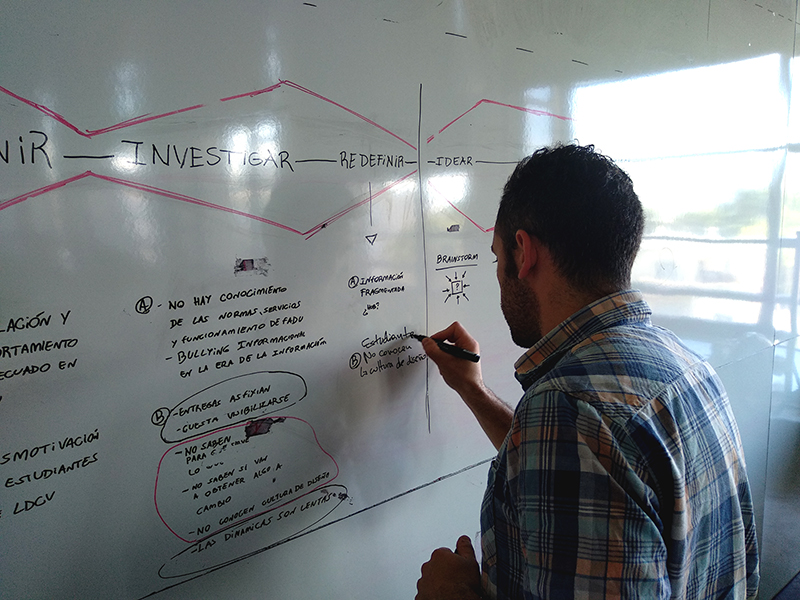 NIR — INVESTIGAR — REDEFINIR — IDEAR
LACIÓN Y
ORTAMIENTO
ECUADO EN
SMOTIVACIÓN
ESTUDIANTES
E LDCV
A - NO HAY CONOCIMIENTO
DE LAS NORMAS, SERVICIOS
Y FUNCIONAMIENTO DE FADU
- BULLYING INFORMACIONAL
EN LA ERA DE LA INFORMACIÓN
B - ENTREGAS ASFIXIAN
- CUESTA VISIBILIZARSE
- NO SABEN
PARA
LO
- NO SABEN SI VAN
A OBTENER ALGO A
CAMBIO
- NO CONOCEN CULTURA DE DISEÑO
- LAS DINAMICAS SON LENTAS
A INFORMACIÓN
FRAGMENTADA
Estudiante
B No conocen
la cultura de diseño
BRAINSTORM
?